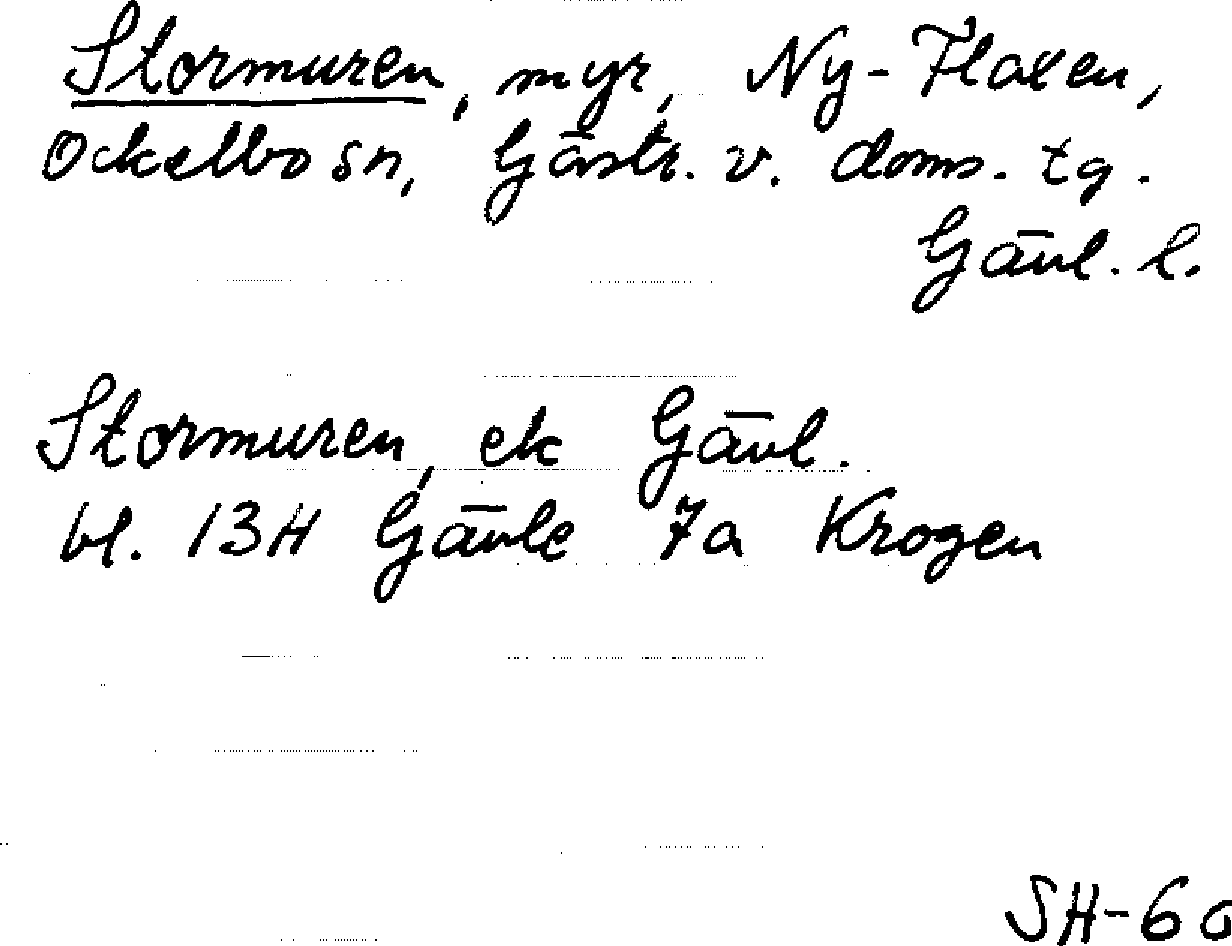 Stormuren, myr, Ny-Flaxen,
Ockelbo sn, Gästr. v. doms. tg.
Gävl. l.
Stormuren, ek Gävl.
bl. 13H Gävle 7a Krogen
SH-60